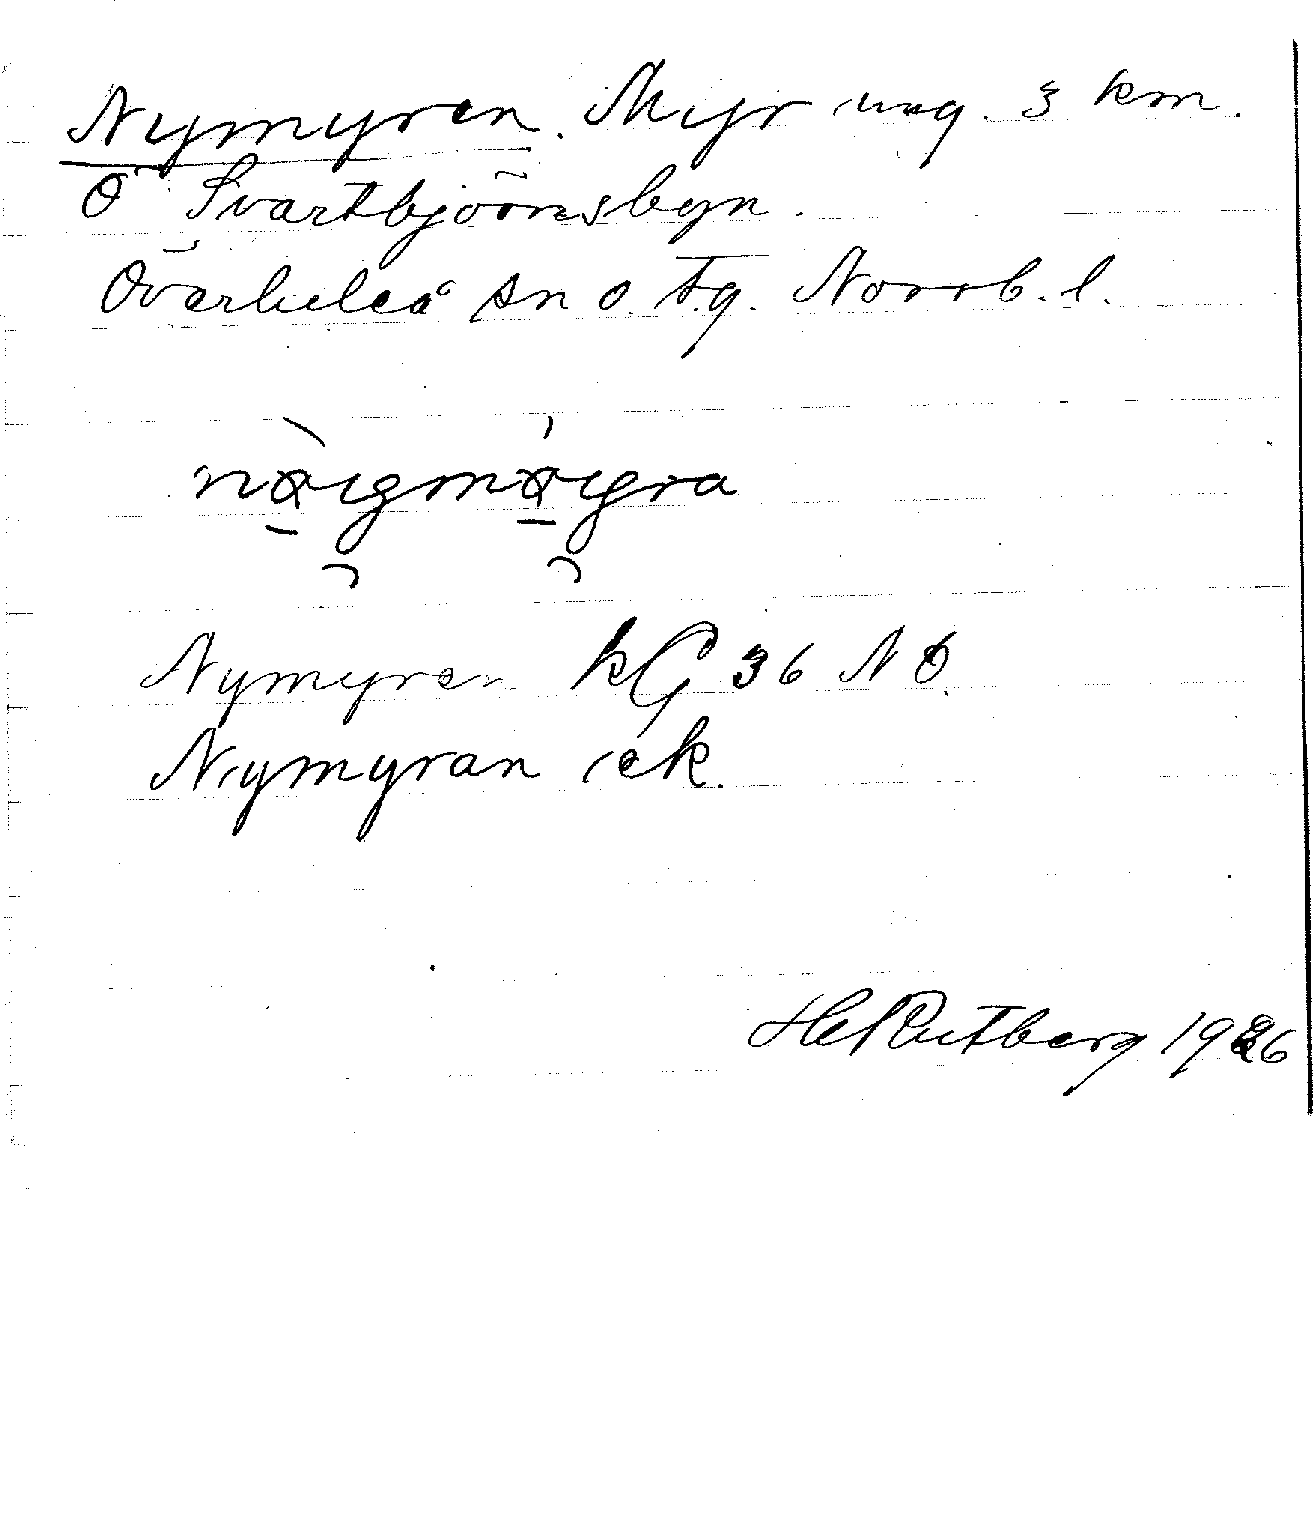 Nymyren. Myr ung. 3 km.
Ö Svartbjörnsbyn.
Överluleå sn o. tg. Norrb. l.
Nymyren kG 36 NÖ.
Nymyran ek.
HelRutberg 1926